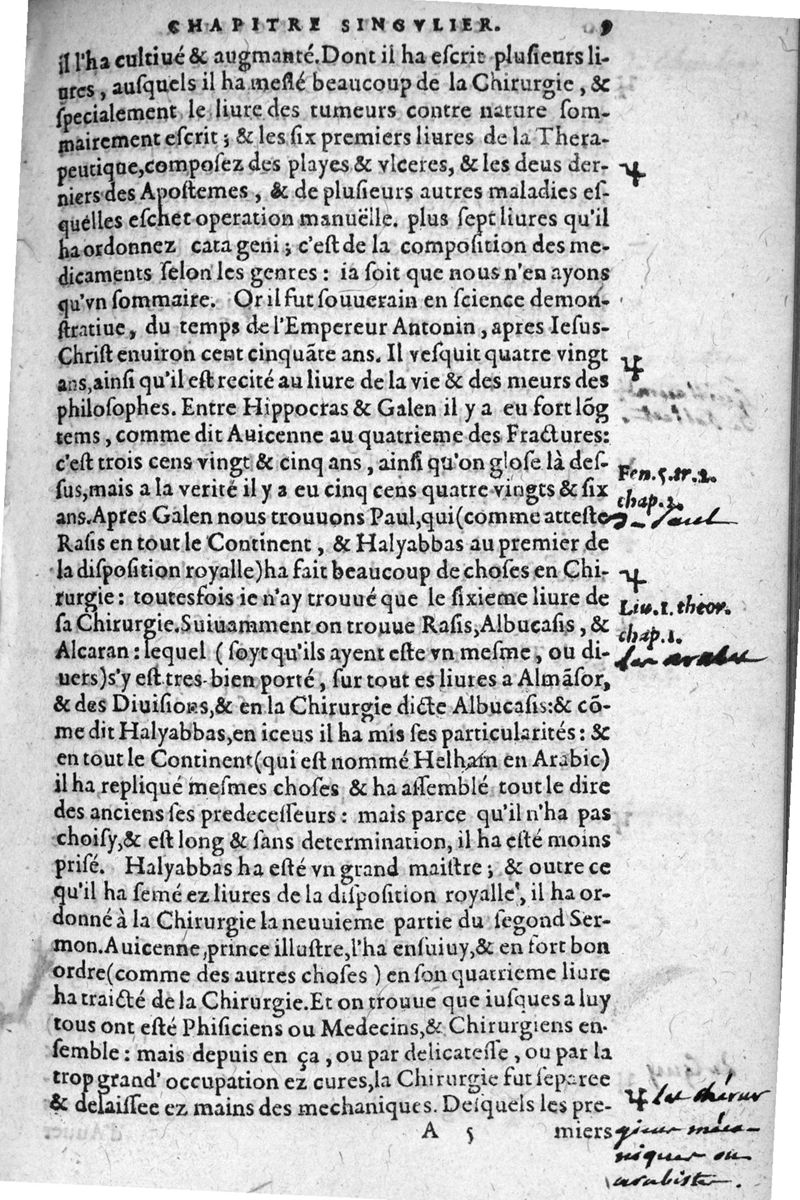 CHAPITRE SINGVLIER. 9
il l'ha cultiué & augmanté. Dont il ha eſcrit pluſieurs li-
ures, auſquels il ha meſlé beaucoup de la Chirurgie, &
ſpecialement le liure des tumeurs contre nature ſom-
mairement eſcrit; & les ſix premiers liures de la Thera-
peutique, compoſez des playes & vlceres, & les deus der-
niers des Apoſtemes, & de pluſieurs autres maladies eſ-
quelles eſchet operation manuëlle. plus ſept liures qu'il
ha ordonnez cata geni; c'eſt de la compoſition des me-
dicaments ſelon les genres: ia ſoit que nous n'en ayons
qu'vn ſommaire. Or il fut ſouuerain en ſcience demon-
ſtratiue, du temps de l'Empereur Antonin, apres Ieſus-
Chriſt enuiron cent cinquãte ans. Il veſquit quatre vingt
ans, ainſi qu'il eſt recité au liure de la vie & des meurs des
philoſophes. Entre Hippocras & Galen il y a eu fort lõg
tems, comme dit Auicenne au quatrieme des Fractures:
c'eſt trois cens vingt & cinq ans, ainſi qu'on gloſe là deſ-
ſus, mais a la verité il y a eu cinq cens quatre vingts & ſix
ans. Apres Galen nous trouuons Paul, qui (comme atteſte
Raſis en tout le Continent, & Halyabbas au premier de
la diſpoſition royalle) ha fait beaucoup de choſes en Chi-
rurgie: toutesfois ie n'ay trouué que le ſixieme liure de
ſa Chirurgie. Suiuamment on trouue Raſis, Albucaſis, &
Alcaran: lequel (ſoyt qu'ils ayent eſte vn meſme, ou di-
uers) s'y eſt tres-bien porté, ſur tout es liures a Almãſor,
& des Diuiſions, & en la Chirurgie dicte Albucaſis: & cõ-
me dit Halyabbas, en iceus il ha mis ſes particularités: &
en tout le Continent (qui eſt nommé Helham en Arabic)
il ha repliqué meſmes choſes & ha aſſemblé tout le dire
des anciens ſes predeceſſeurs: mais parce qu'il n'ha pas
choiſy, & eſt long & ſans determination, il ha eſté moins
priſé. Halyabbas ha eſté vn grand maiſtre; & outre ce
qu'il ha ſemé ez liures de la diſpoſition royalle, il ha or-
donné à la Chirurgie la neuuieme partie du ſegond Ser-
mon. Auicenne, prince illuſtre, l'ha enſuiuy, & en fort bon
ordre (comme des autres choſes) en ſon quatrieme liure
ha traicté de la Chirurgie. Et on trouue que iuſques a luy
tous ont eſté Phiſiciens ou Medecins, & Chirurgiens en-
ſemble: mais depuis en ça, ou par delicateſſe, ou par la
trop grand' occupation ez cures, la Chirurgie fut ſeparee
& delaiſſee ez mains des mechaniques. Deſquels les pre-
A 5 miers
Fen. 5. tr. 2.
chap. 2.
3- Paul
Liu. 1. theor.
chap. 1.
les arabes
les chirur
giens méca-
niques ou
arabistes.